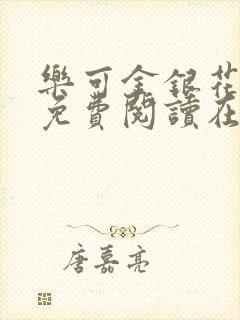 樂可金銀花
免費閱讀在
唐嘉亮